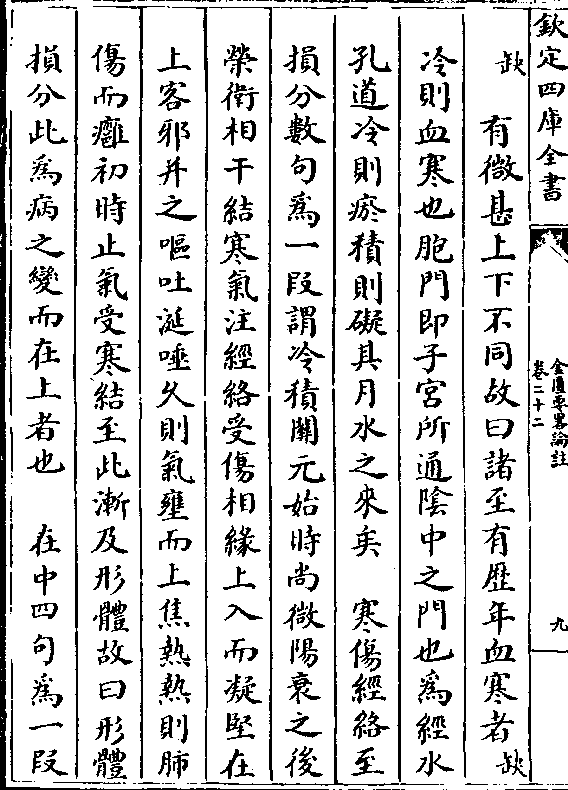 欽定四庫全書
金匱要畧論註
卷二十二
九
缺　有微甚上下不同故曰諸至有歴年血寒者缺
冷則血寒也胞門即子宫所通陰中之門也為經水
孔道冷則瘀積則礙其月水之來矣　寒傷經絡至
損分數句為一段謂冷積關元始時尚微陽衰之後
榮衛相干結寒氣注經絡受傷相緣上入而凝堅在
上客邪并之嘔吐涎唾久則氣壅而上焦熱熱則肺
傷而癰初時止氣受寒結至此漸及形體故曰形體
損分此為病之變而在上者也　在中四句為一段